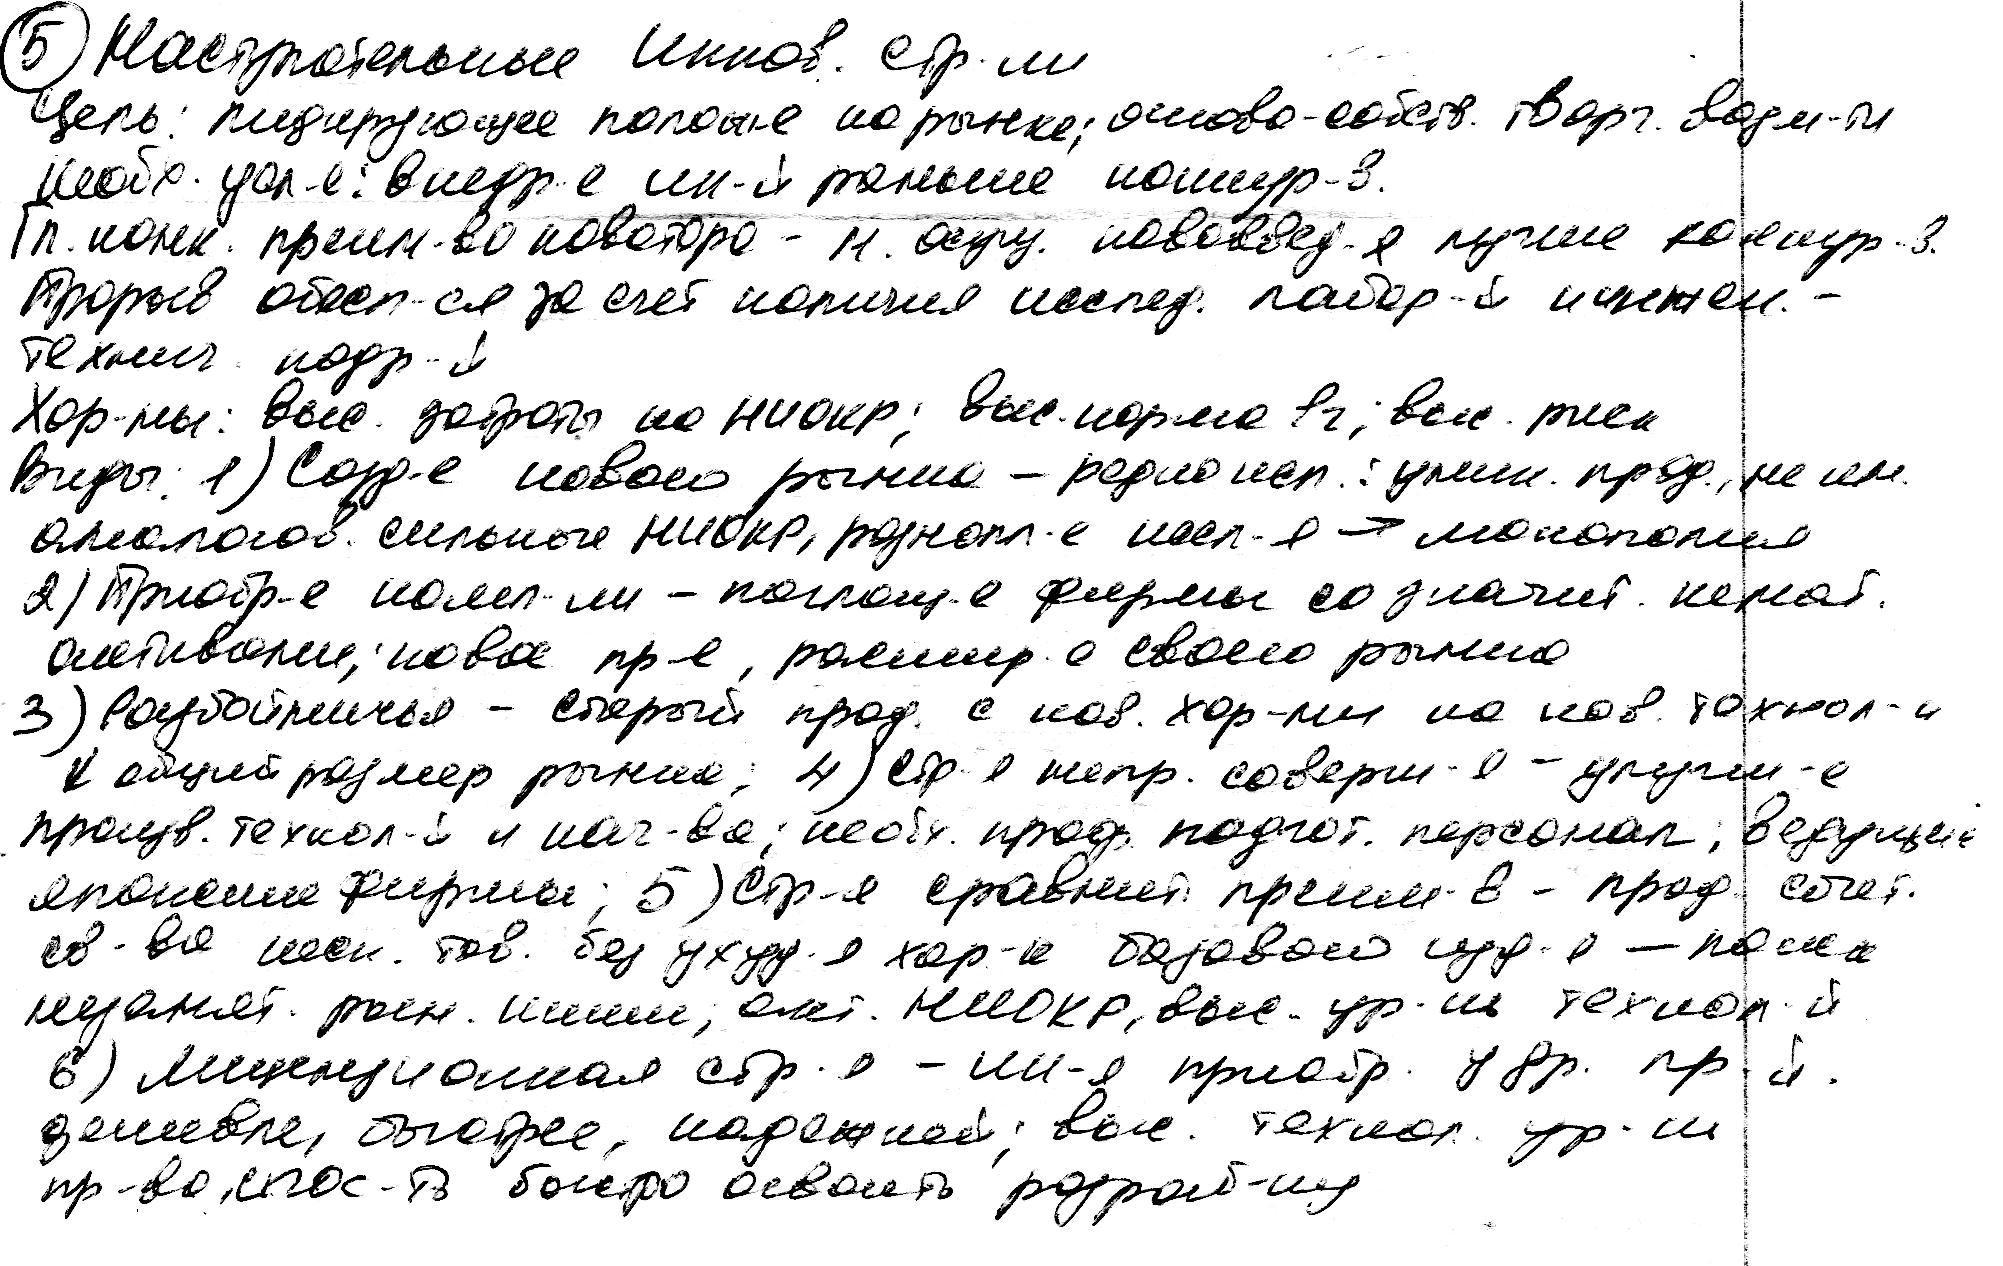 5) Наступательные иннов. стр-ии
Цель: лидирующее полож-е на рынке; основа-собств. творч. возм-ти
Необх. усл-е: внедр-е ин-й раньше конкур-в.
Гл. конк. преим-во новатора - м. осущ. нововвед-я лучше конкур-в.
Прорыв обесп-ся за счет наличия исслед. лабор-й инжен.-
технич. подр-й
Хар-ны: выс. затраты на НИОКР; выс. норма Pr; выс. риск
Виды: 1) Созд-е нового рынка - редко исп.: уник. прод., не им.
аналогов. сильные НИОКР, рознопл-е иссл-я → монополия
2) Приобр-е комп-ии - поглощ-е фирмы со значит. немат.
активами; новое пр-е, расшир-е своего рынка
3) Разбойничья - старый прод. с нов. хар-ми на нов. технол-и
↓ общий размер рынка; 4) Стр-я непр. соверш-я - улучш-е
произв. технол-й и кач-ва; необх. проф. подгот. персонал; ведущие
японские фирмы; 5) Стр-я сравнит. преим-в - прод. сочет.
св-ва неск. тов. без ухуд-я хар-к базового изд-я — поиск
незанят. рын. ниши; акт. НИОКР, выс. ур-нь технол-й
6) Лицензионная стр-я - ин-я приобр. у др. пр-й.
дешевле, быстрее, надежней; выс. технол. ур-нь
пр-ва, спос-ть быстро освоить разраб-ку